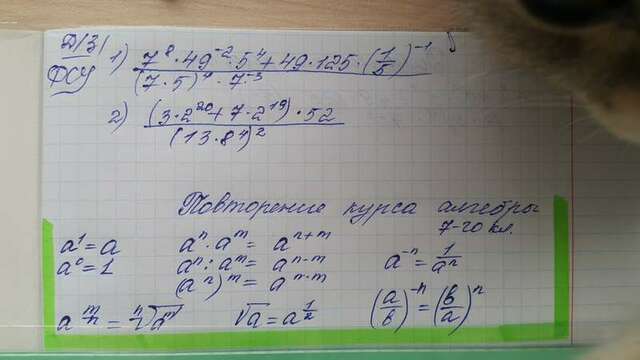 Д/З/ 1) (7⁸ · 49⁻² · 5⁴ + 49 · 125 · (1/5)⁻¹) / ((7 · 5)⁴ · 7⁻³)
ФСУ
2) ((3 · 2²⁰ + 7 · 2¹⁹) · 52) / (13 · 8⁴)²
Повторение курса алгебры
7-го кл.
a¹ = a    aⁿ · aᵐ = aⁿ⁺ᵐ
a⁰ = 1    aⁿ : aᵐ = aⁿ⁻ᵐ    a⁻ⁿ = 1/aⁿ
(aⁿ)ᵐ = aⁿ·ᵐ
a^(m/n) = ⁿ√aᵐ    √a = a^(1/2)    (a/b)⁻ⁿ = (b/a)ⁿ